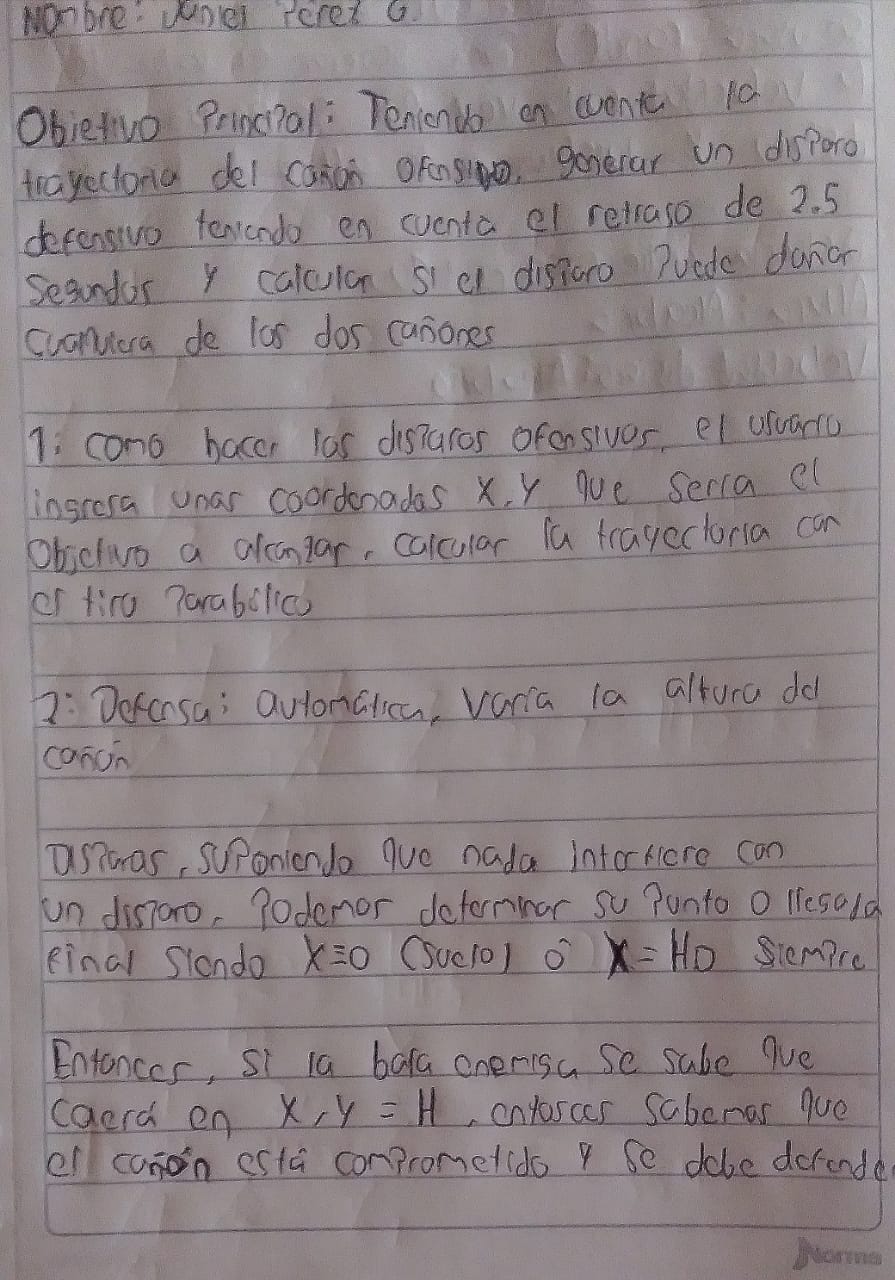 Nombre: Perez G.
Objetivo Principal: Teniendo en cuenta la
trayectoria del cañón ofensivo, generar un disparo
defensivo teniendo en cuenta el retraso de 2.5
Segundos y calcular si el disparo Puede dañar
cualquiera de los dos cañones
1: como hacer los disparos ofensivos, el usuario
ingresa unas coordenadas X,Y que serra el
Objetivo a alcanzar, calcular la trayectoria con
el tiro Parabólico
2: Defensa: automática, varia la altura del
cañón
Disparos, suponiendo que nada interfiere con
un disparo, Podemos determinar su Punto o llegada
final siendo X=0 (suelo) ó X=HD siempre
Entonces, si la bala enemiga se sabe que
caerá en X,Y=H, entonces sabemos que
el cañón está comprometido y se debe defende
Norma